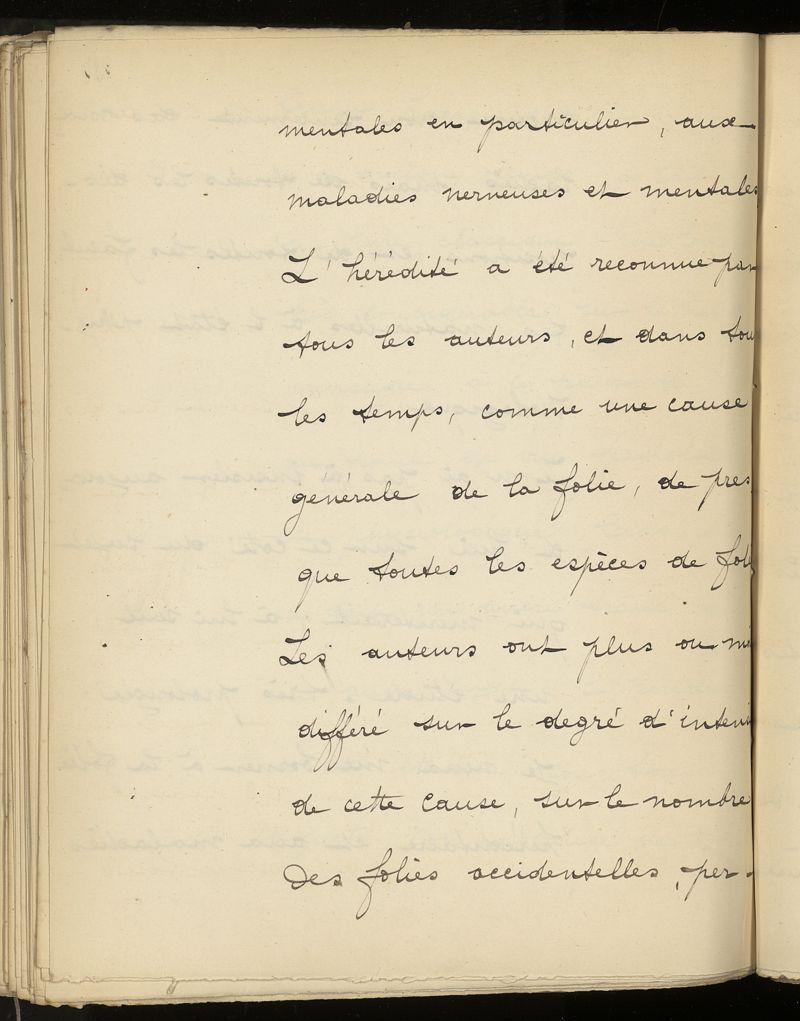 mentales en particulier, aux
maladies nerveuses et mentales
L'hérédité a été reconnue par
tous les auteurs, et dans tou
les temps, comme une cause
générale de la folie, de pres
que toutes les espèces de foli
Les auteurs ont plus ou
différé sur le degré d'inten
de cette cause, sur le nombre
des folies occidentelles, per-